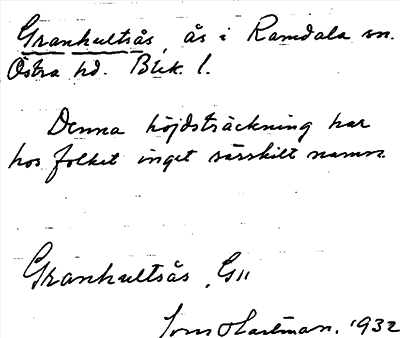 Granhultsås, ås i Ramdala sn.
Östra hd. Blek. l.
Denna höjdsträckning har
hos folket inget särskilt namn.
Granhultsås, G11
Hartman. 1932